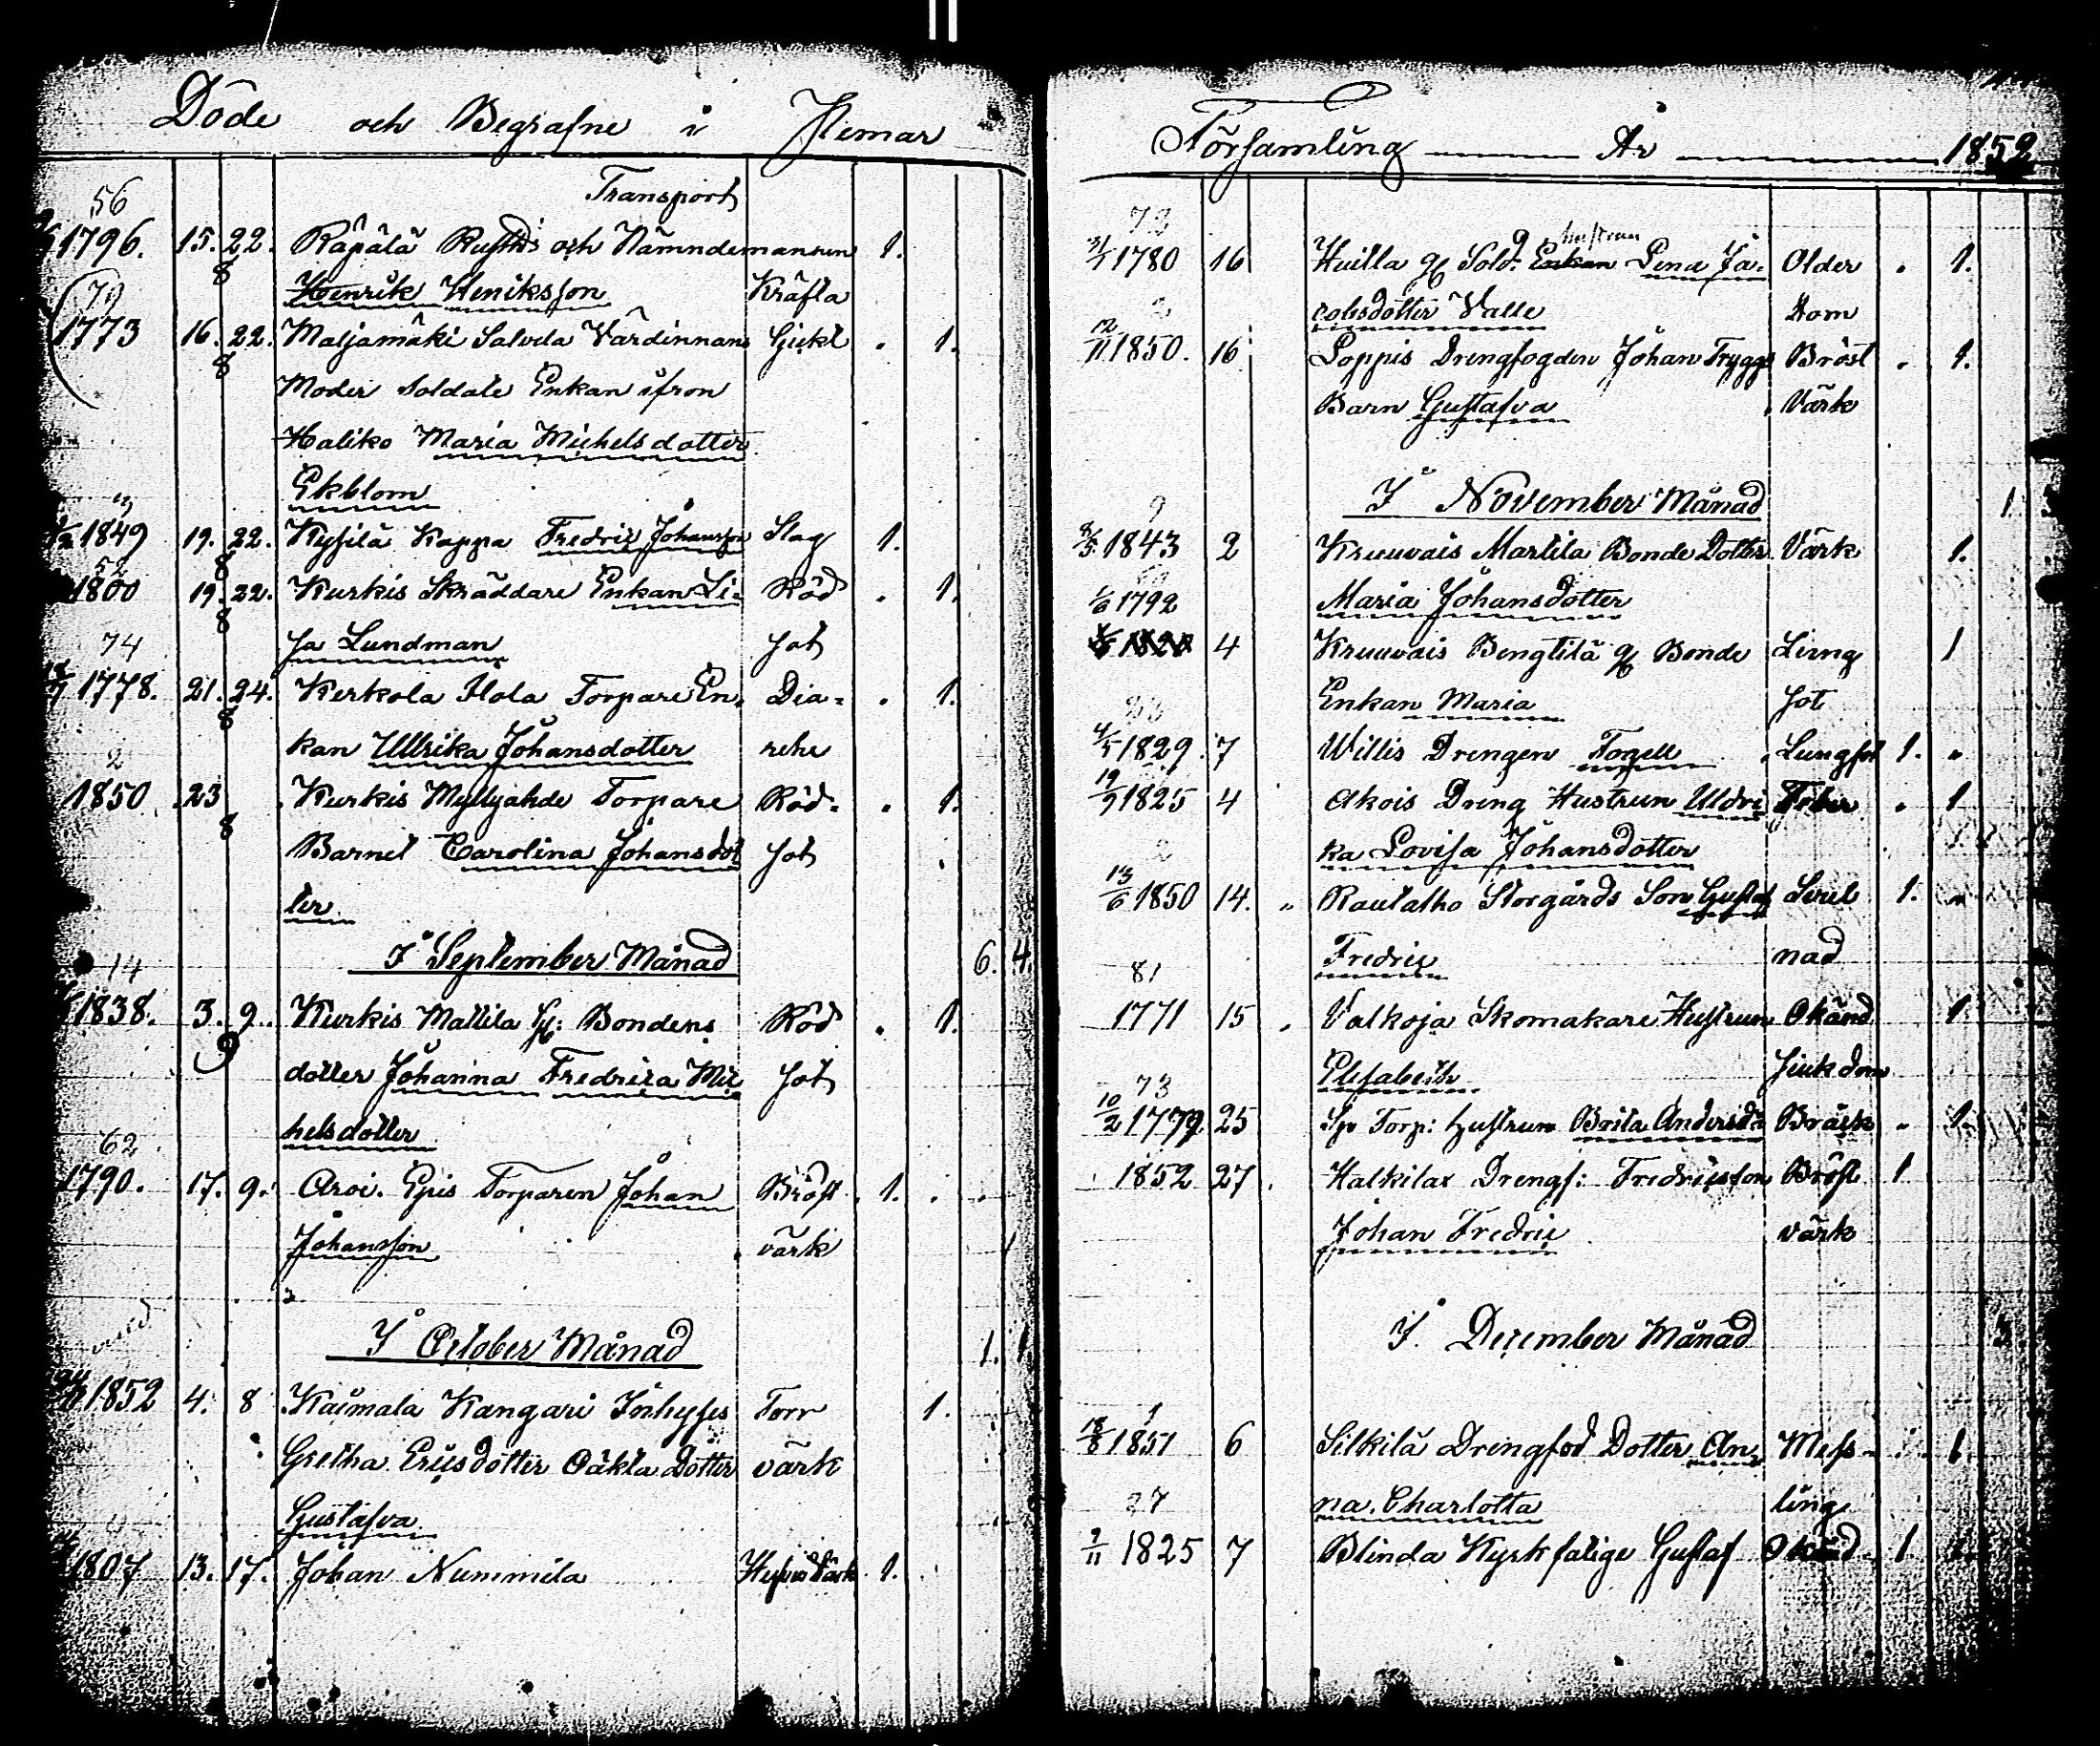 Döde och Begrafne i Hemar
Transport
56
1796. 15. 22. Räpälä Rusth: och Nämndemannen 1.
8
Henrik Heniksson Kräfta
79
1773 16. 22. Maljamäki Salvda Värdinnans Gickt . 1.
8
Moder Soldate Enkan ifron
Haliko Maria Michelsdotter
Ekblom
3
1849 19. 22. Kysilä Kappa Fredric Johansson Slag 1.
8
52
1800 19. 22. Kurkis Skräddare Enkan Li- Röd . 1.
8
74
sa Lundman sot
1778. 21. 24. Kerkola Ilola Torpare En- Dia= . 1.
8
kan Ullrika Johansdotter rehe
2
1850 .23 Kurkis Myllyahde Torpare Röd- . 1.
8
Barnet Carolina Johansdot sot
ter
I September Månad 6. 4.
14
1838. 3. 9. Kurkis Mattila Bondens Röd . 1.
9
dotter Johanna Fredrica Mic sot
helsdotter
62
1790. 17. 9. Aroi. Epis Torparen Johan Bröst . 1. .
Johansson värk
I October Månad 1. 1.
1852 4. 8 Kaimala Kangari Inhyses Torr 1.
Gretha Ericsdotter Oäkta Dotter värk
Gustafva
1807 13. 17. Johan Nummila 1.
Församling År 1852
72
31/1 1780 16 Huilla Sold. Enkan hustrun Lena Ja- Older . 1.
2
cobsdotter Valle dom
12/11 1850. 16 Loppis Drengfogden Johan Tryggs Bröst . 1.
Barn Gustafva Värk
I November Månad 1. 3
9
8/5 1843 2 Kruuvais Martila Bonde Dotter Värk 1.
1/6 1792 Maria Johansdotter
4 Kruuvais Bengtilä Bonde Lung 1
Enkan Maria sot
23
4/5 1829. 7 Willis Drengen Fogell Lungsot 1. "
19/9 1825 4 Akois Dreng Hustrun Uldri Feber . 1
2
ka Lovisa Johansdotter
13/6 1850 14. " Rautalho Storgårds Son Gustaf Strel 1. "
Fredric nad
81
1771 15 " Valkoja Skomakare Hustrun Okänd 1
Elisabeth sjukdom
73
10/2 1779 25 Torp: hustrun Brita Andersdr Bräck " 1.
1852 27 . Halkilax Drengs: Fredricsson Bröst 1
Johan Fredric värk
I December Månad 3.
1
18/8 1851 6 Silkilä Drengfod Dotter An- Mess- 1.
27
na Charlotta ling
7/11 1825 7 Blinda Kyrk fatige Gustaf Okänd 1.